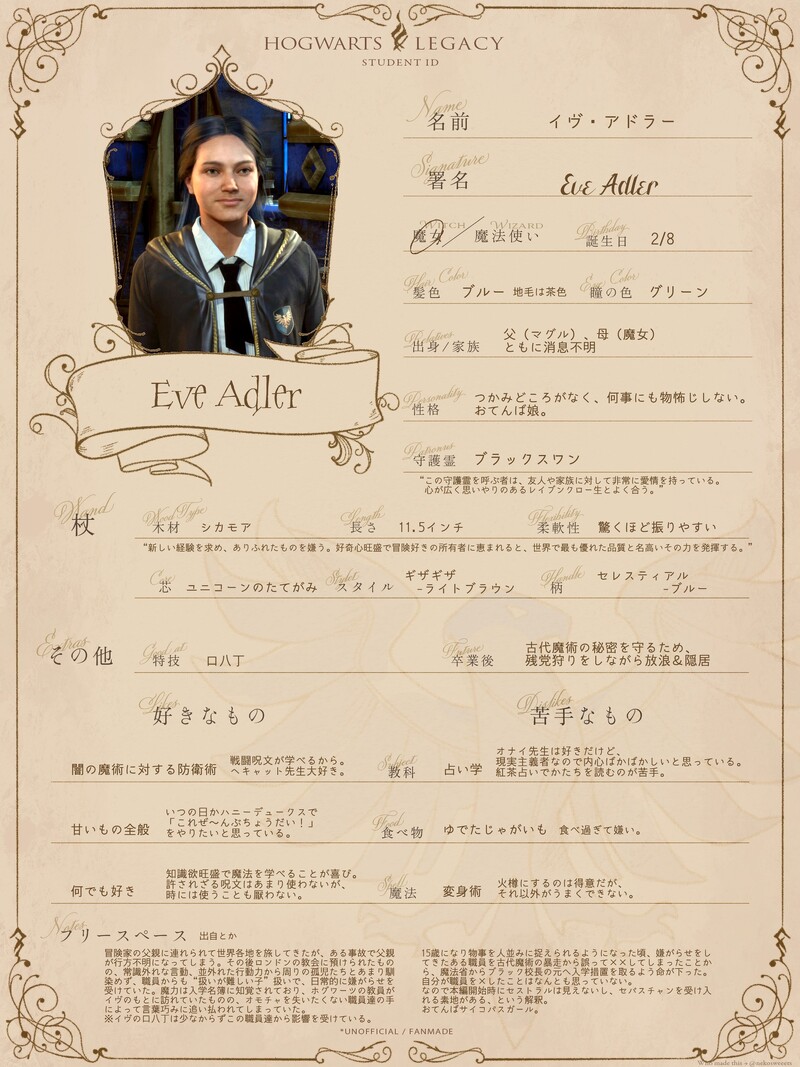 HOGWARTS LEGACY
STUDENT ID
Eve Adler
Name
名前 イヴ・アドラー
Signature
署名 Eve Adler
WITCH WIZARD
魔女／魔法使い
Birthday
誕生日 2/8
Hair Color
髪色 ブルー 地毛は茶色
Eye Color
瞳の色 グリーン
Relatives
出身/家族 父（マグル）、母（魔女）
ともに消息不明
Personality
性格 つかみどころがなく、何事にも物怖じしない。
おてんば娘。
Patronus
守護霊 ブラックスワン
“この守護霊を呼ぶ者は、友人や家族に対して非常に愛情を持っている。
心が広く思いやりのあるレイブンクロー生とよく合う。”
Wand
杖
Wood Type
木材 シカモア
Length
長さ 11.5インチ
Flexibility
柔軟性 驚くほど振りやすい
“新しい経験を求め、ありふれたものを嫌う。好奇心旺盛で冒険好きの所有者に恵まれると、世界で最も優れた品質と名高いその力を発揮する。”
Core
芯 ユニコーンのたてがみ
Style
スタイル ギザギザ
-ライトブラウン
Handle
柄 セレスティアル
-ブルー
Extras
その他
Good at
特技 口八丁
Future
卒業後 古代魔術の秘密を守るため、
残党狩りをしながら放浪＆隠居
Likes
好きなもの
Dislikes
苦手なもの
闇の魔術に対する防衛術 戦闘呪文が学べるから。
ヘキャット先生大好き。
Subject
教科
占い学 オナイ先生は好きだけど、
現実主義者なので内心ばかばかしいと思っている。
紅茶占いでかたちを読むのが苦手。
甘いもの全般 いつの日かハニーデュークスで
「これぜ〜んぶちょうだい！」
をやりたいと思っている。
Food
食べ物
ゆでたじゃがいも 食べ過ぎて嫌い。
何でも好き 知識欲旺盛で魔法を学べることが喜び。
許されざる呪文はあまり使わないが、
時には使うことも厭わない。
Spell
魔法
変身術 火樽にするのは得意だが、
それ以外がうまくできない。
Notes
フリースペース 出自とか
冒険家の父親に連れられて世界各地を旅してきたが、ある事故で父親
が行方不明になってしまう。その後ロンドンの教会に預けられたもの
の、常識外れな言動、並外れた行動力から周りの孤児たちとあまり馴
染めず、職員からも“扱いが難しい子”扱いで、日常的に嫌がらせを
受けていた。魔力は入学名簿に知覚されており、ホグワーツの教員が
イヴのもとに訪れていたものの、オモチャを失いたくない職員達の手
によって言葉巧みに追い払われてしまっていた。
※イヴの口八丁は少なからずこの職員達から影響を受けている。
15歳になり物事を人並みに捉えられるようになった頃、嫌がらせをし
てきたある職員を古代魔術の暴走から誤って××してしまったことか
ら、魔法省からブラック校長の元へ入学措置を取るよう命が下った。
自分が職員を×したことはなんとも思っていない。
なので本編開始時にセストラルは見えないし、セバスチャンを受け入
れる素地がある、という解釈。
おてんばサイコパスガール。
*UNOFFICIAL / FANMADE